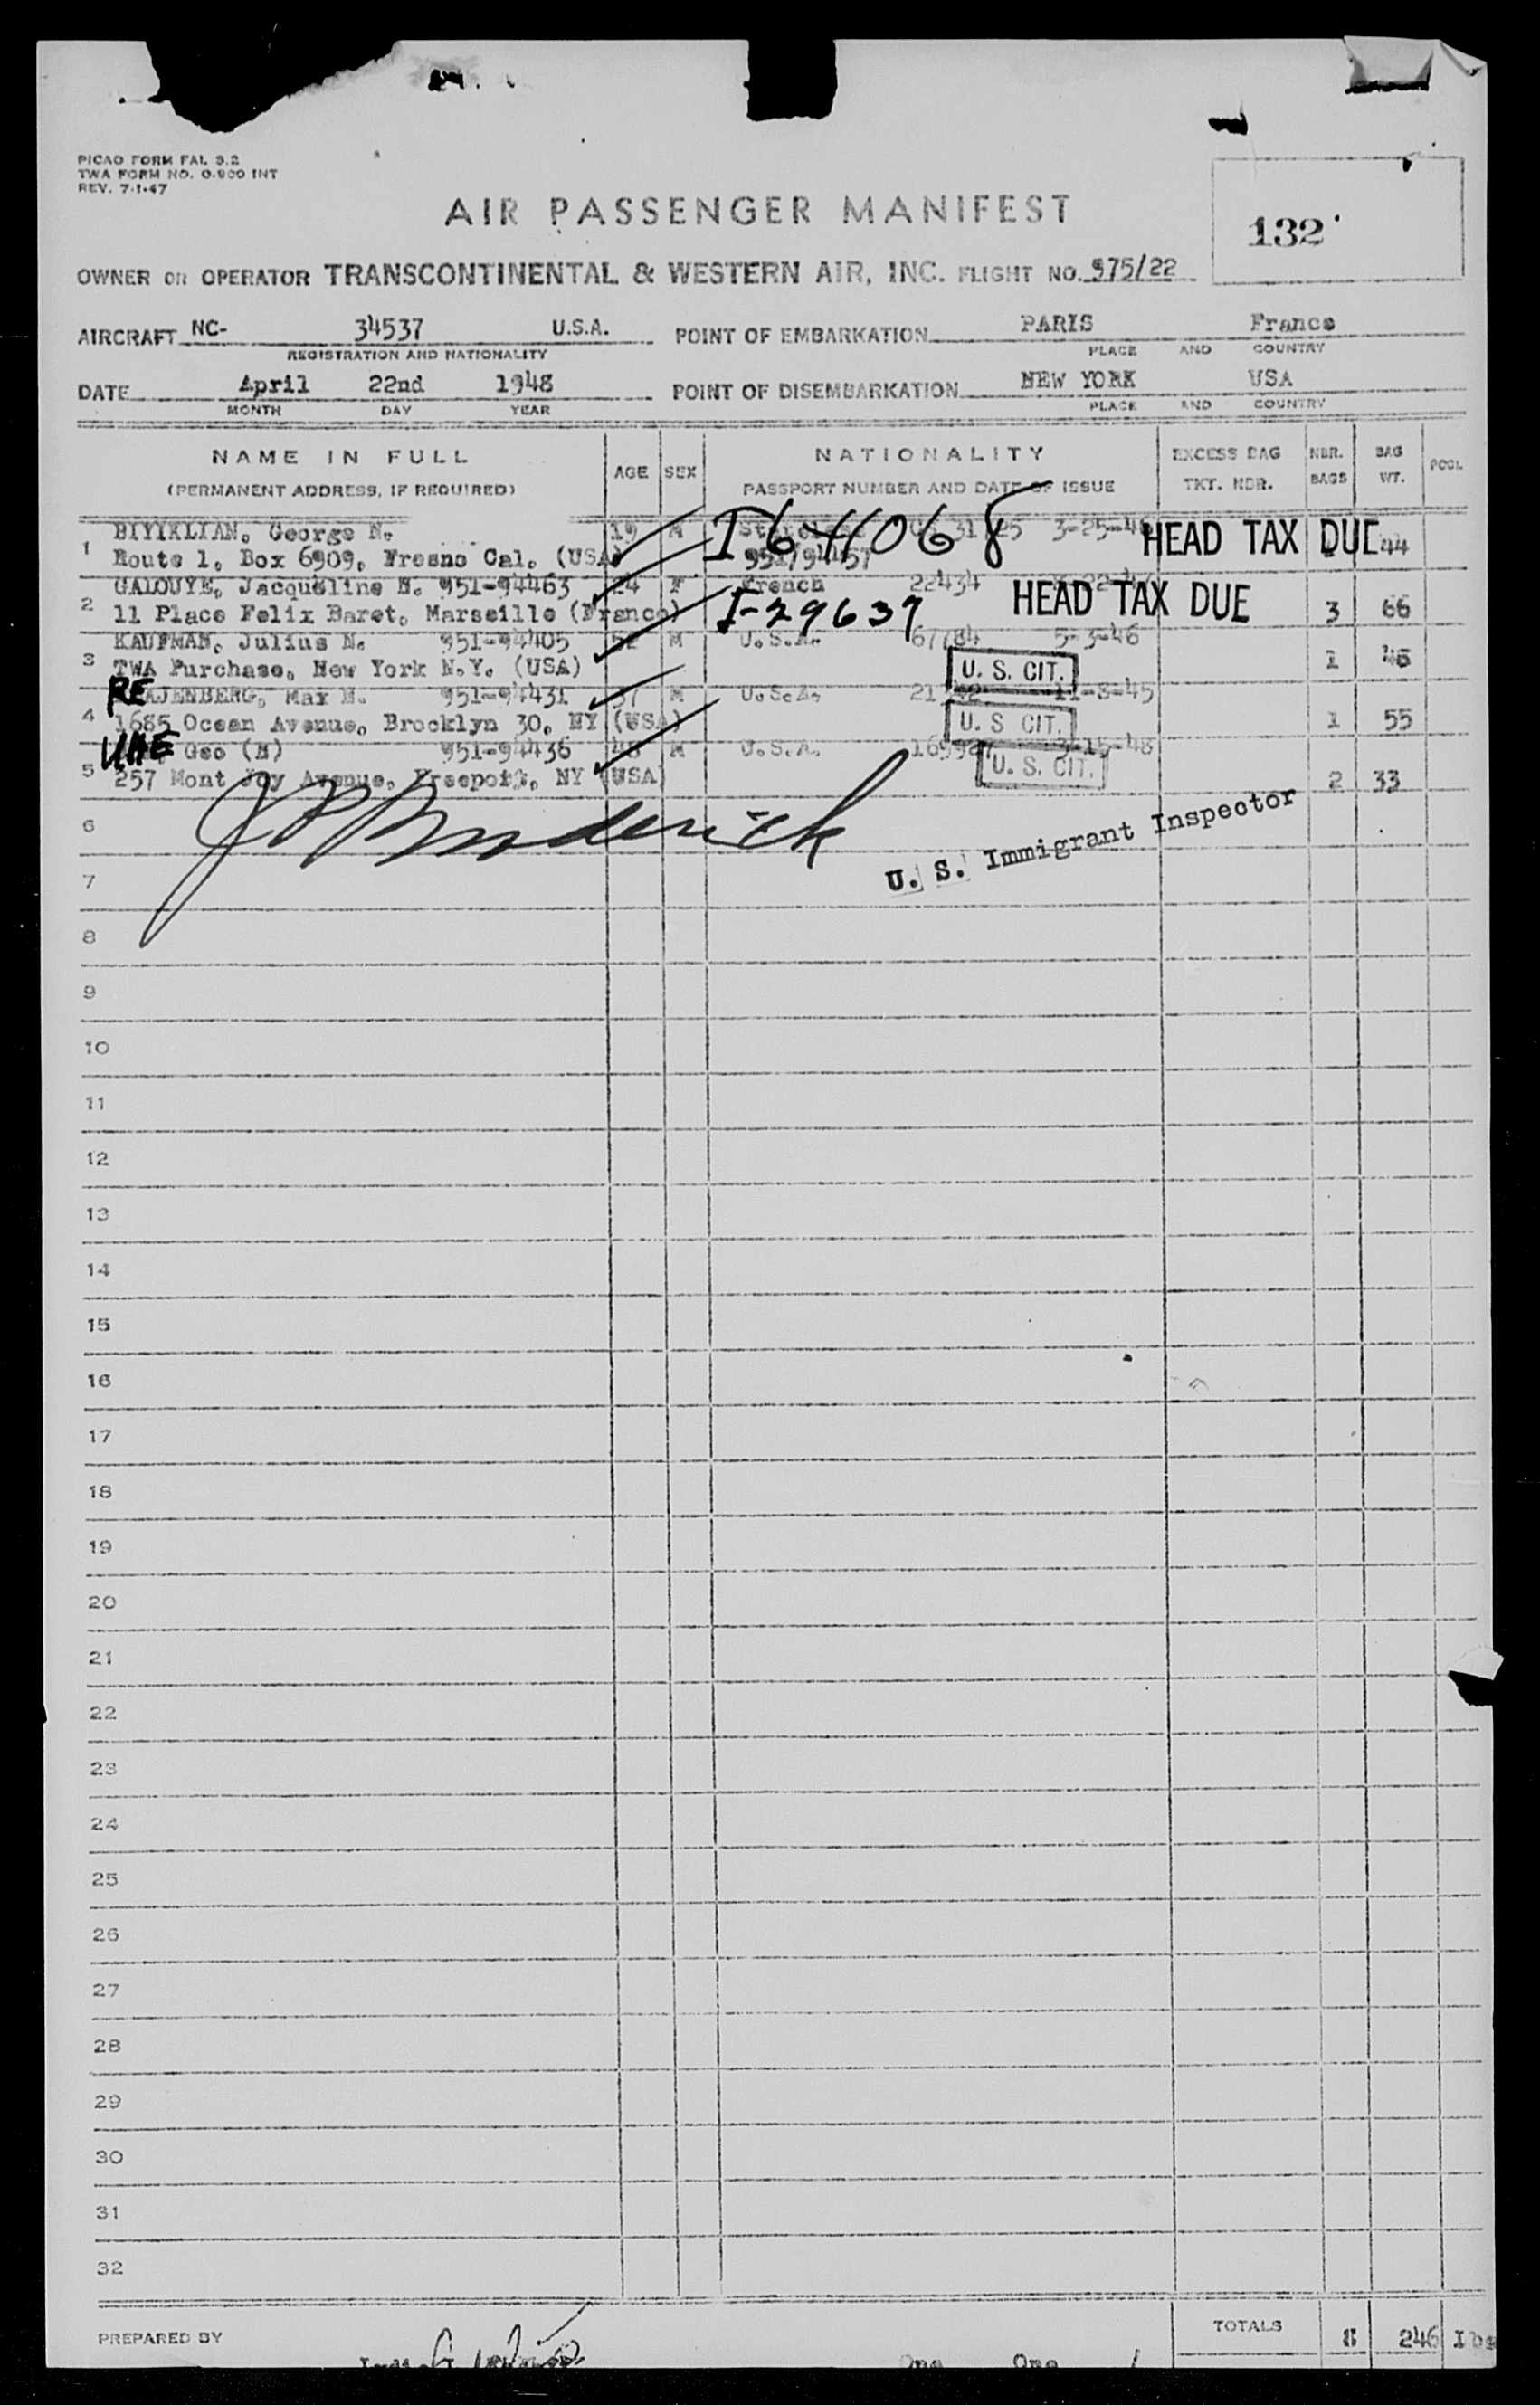 PICAO FORM FAL 3.2
TWA FORM NO. O-900 INT
REV. 7-1-47
AIR PASSENGER MANIFEST
132
OWNER OR OPERATOR TRANSCONTINENTAL & WESTERN AIR, INC. FLIGHT NO. 975/22
AIRCRAFT NC- 34537 U.S.A. POINT OF EMBARKATION PARIS France
REGISTRATION AND NATIONALITY PLACE AND COUNTRY
DATE April 22nd 1948 POINT OF DISEMBARKATION NEW YORK USA
MONTH DAY YEAR PLACE AND COUNTRY
NAME IN FULL AGE SEX NATIONALITY EXCESS BAG NBR. BAG POOL
(PERMANENT ADDRESS, IF REQUIRED) PASSPORT NUMBER AND DATE OF ISSUE TKT. NBR. BAGS WT.
BIYIKLIAN, George N. 19 M
1 Route 1, Box 6909, Fresno Cal. (USA) I641068 951/94457 HEAD TAX DUE 44
GALOUYE, Jacqueline N. 951-94463 24 F French 22434
2 11 Place Felix Baret, Marseille (France) I-29637 HEAD TAX DUE 3 66
KAUFMAN, Julius N. 951-94405 52 M U.S.A. 67784 5-3-46
3 TWA Purchase, New York N.Y. (USA) U. S. CIT. 1
RE AJENBERG, Max N. 951-94431 37 M U.S.A.
4 1685 Ocean Avenue, Brooklyn 30, NY (USA) U. S CIT. 1 55
UHE Geo (N) 951-94436 48 M U.S.A. 3-15-48
5 257 Mont Joy Avenue, Freeport, NY (USA) U. S. CIT. 2 33
6 Broderick
7 U. S. Immigrant Inspector
8
9
10
11
12
13
14
15
16
17
18
19
20
21
22
23
24
25
26
27
28
29
30
31
32
PREPARED BY TOTALS 8 246 Lbs
One One